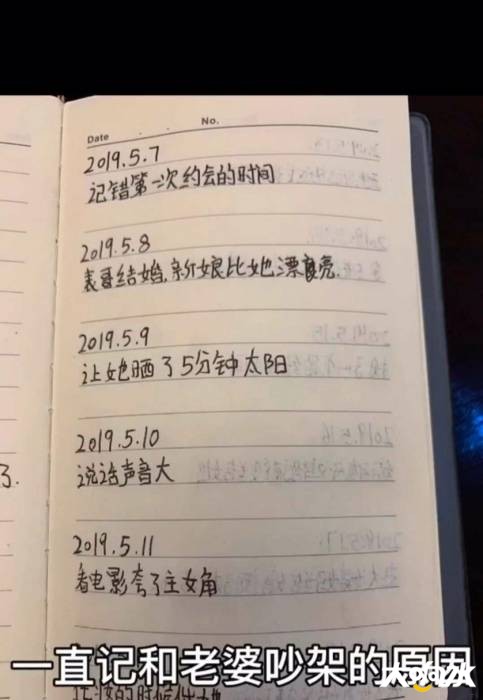 Date
No.
2019.5.7
记错第一次约会的时间
2019.5.8
表哥结婚,新娘比她漂亮.
2019.5.9
让她晒了5分钟太阳
2019.5.10
说话声音大
了.
2019.5.11
看电影夸了主女角
一直记和老婆吵架的原因